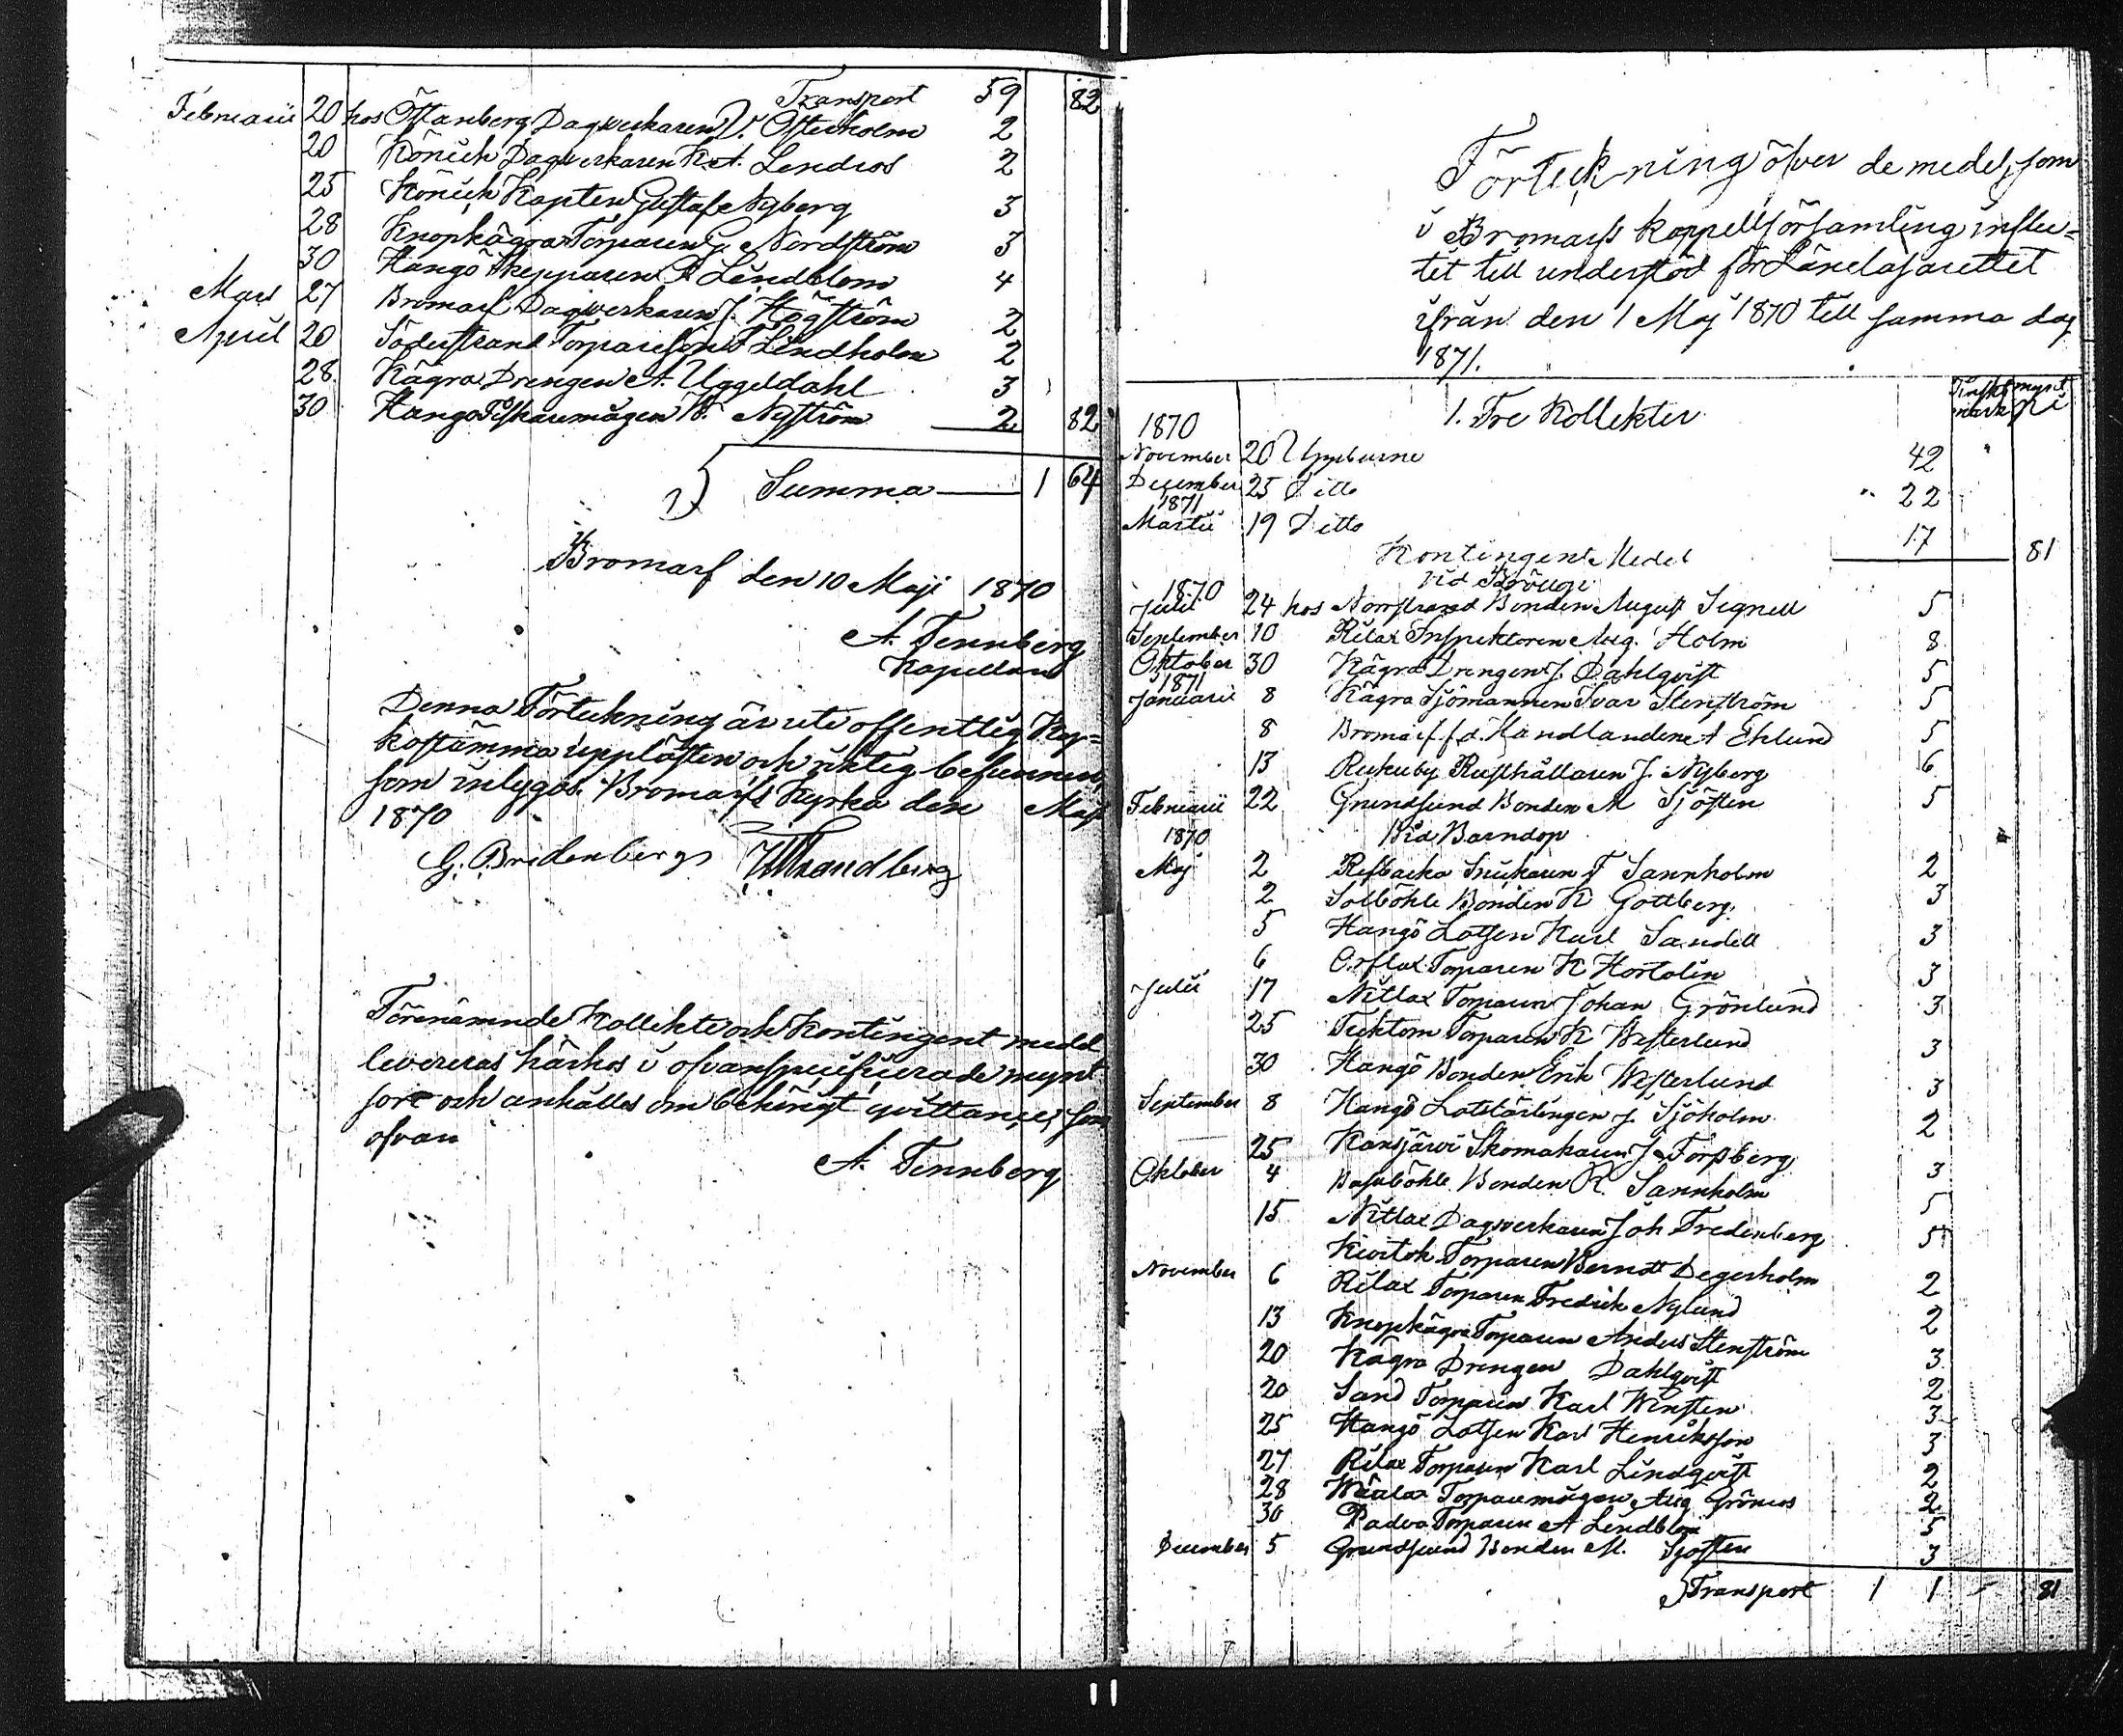 Transport 59 82
Februarii 20 hos Östanberg Dagverkaren V. Österholm 2
20 Könick Dagverkaren K. A. Lendros 2
25 Könick Kapten Gustaf Nyberg 3
28 Knopkägra Torparen G. Nordström 3
30 Hangö Skepparen A Lindblom 4
Mars 27 Bromarf Dagverkaren J. Högström 2
April 20 Söderstrand Torpareson F Lindholm 2
28 Kägra Drengen A. Uggeldahl 3
30 Hangö Fiskaremågen W. Nyström 2 82
Summa 1 64
Bromarf den 10 Maji 1870
A. Tennberg
Kapellan
Denna Förteckning är uti offentlig Kyr=
kostämma uppläsen och riktig befunnen,
som intygas. Bromarfs Kyrka den Maji
1870
G. Bridenberg W Strandberg
Förenämnde Kollekt och Kontingent medel
levereras härhos i ofvanspecificerade mynt
sort och anhålles om behörigt quittance, som
ofvan
A. Tennberg
Förteckning öfver de medel, som
i Bromarfs Kappellförsamling influ=
tet till understöd för Länelasarettet
ifrån den 1 Maj 1870 till samma dag
1871.
Finskt mynt
mark pi
1. Tre Kollekter
1870
November 20 Uppburne 42
December 25 Ditto 22
1871
Martii 19 Ditto 17 81
Kontingent Medel
Vid Bröllop
1870
Julii 24 hos Norrstrand Bonden August Signell 5
September 10 Rilax Inspektoren Aug. Holm 8
Oktober 30 Kägra Drengen J. Dahlqvist 5
1871
Januarii 8 Kägra Sjömannen Ivar Stenström 5
8 Bromarf f.d. Handlanden A Ehlund 5
13 Rukuby Rusthållaren J. Nyberg 6
Februarii 22 Grundsund Bonden M Sjösten 5
1870 Vid Barndop
Maj 2 Refbacka Snickaren F Sannholm 2
2 Solböhle Bonden K Gottberg 3
5 Hangö Lotsen Karl Sandell 3
6 Orslax Torparen K Hortolin 3
Julii 17 Nitlax Torparen Johan Grönlund 3
25 Tecktom Torparen K Westerlund 3
30 Hangö Bonden Erik Westerlund 3
September 8 Hangö Lotslärlingen J. Sjöholm 2
25 Kansjärvi Skomakaren J. Forsberg 3
Oktober 4 Basaböhle Bonden R. Sannholm 5
15 Nitlax Dagsverkaren Joh Fredenberg 5
Kivitok Torparen Berndt Degerholm 2
November 6 Rilax Torparen Fredrik Nylund 2
13 Knopkägra Torparen Anders Stenström 3
20 Kägra Drengen Dahlqvist 2
20 Sand Torparen Karl Winsten 3
25 Hangö Lotsen Karl Henriksson 3
27 Rilax Torparen Karl Lindqvist 2
28 Wättlax Torparemågen Aug Grönros 2
30 Padva Torparen A Lindblom 5
December 5 Grundsund Bonden M. Sjösten 3
Transport 1 1 81